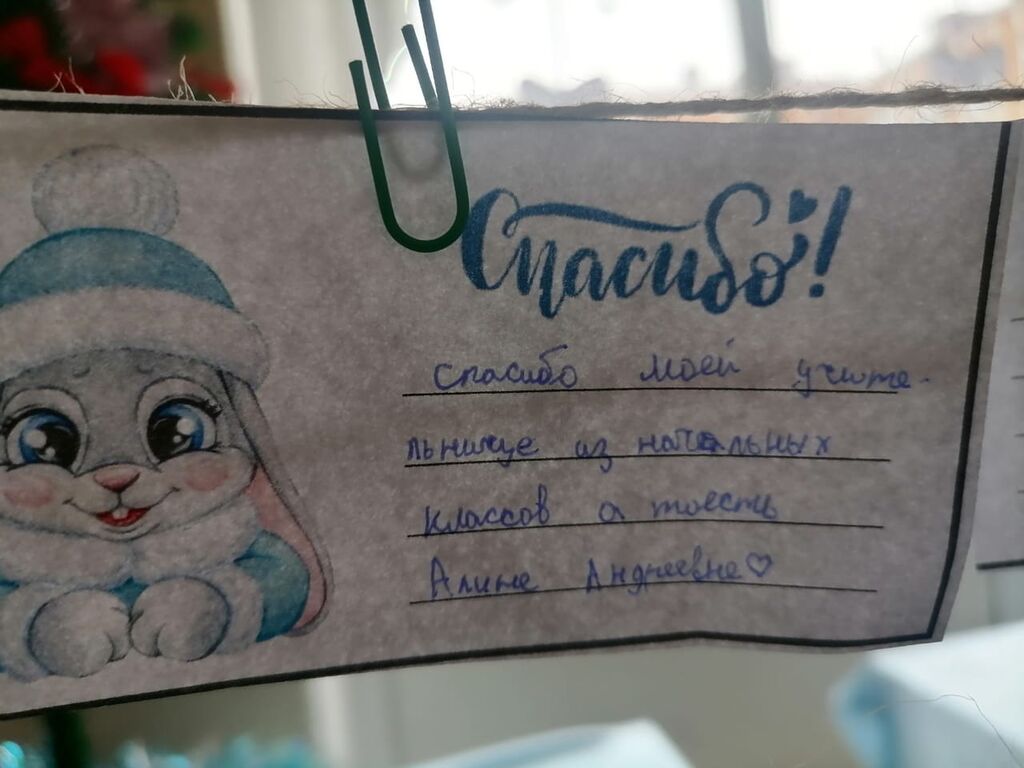 Спасибо!
спасибо моей учите-
льнице из начальных
классов а тоесть
Алине Андреевне♡